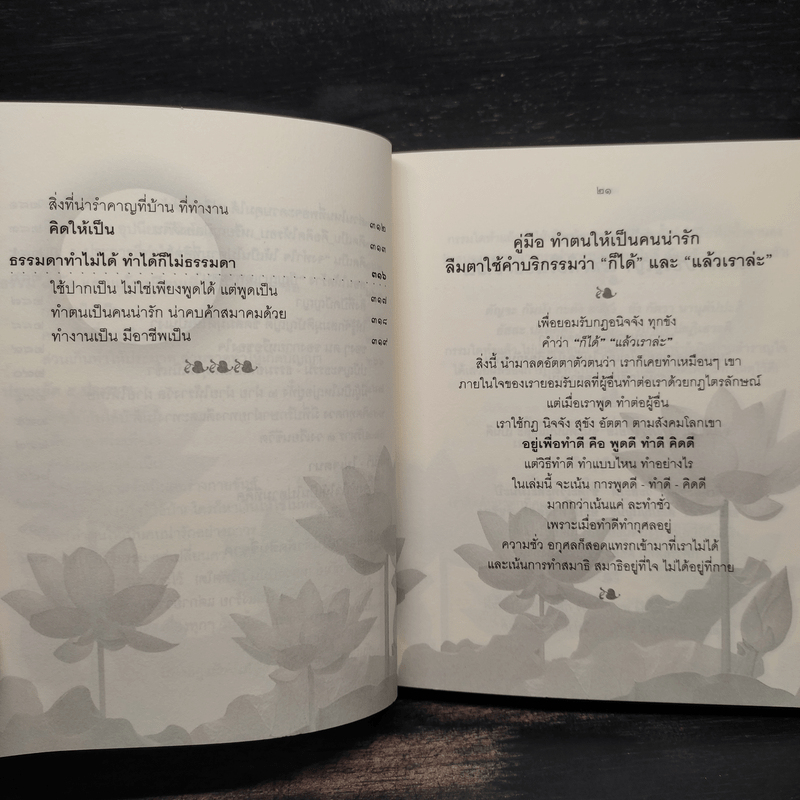 สิ่งที่น่ารำคาญที่บ้าน ที่ทำงาน ๓๑๒
คิดให้เป็น ๓๑๓
ธรรมดาทำไม่ได้ ทำได้ก็ไม่ธรรมดา ๓๑๖
ใช้ปากเป็น ไม่ใช่เพียงพูดได้ แต่พูดเป็น ๓๑๗
ทำตนเป็นคนน่ารัก น่าคบค้าสมาคมด้วย ๓๑๘
ทำงานเป็น มีอาชีพเป็น ๓๑๙
๒๑
คู่มือ ทำตนให้เป็นคนน่ารัก
ลืมตาใช้คำบริกรรมว่า “ก็ได้” และ “แล้วเราล่ะ”
เพื่อยอมรับกฎอนิจจัง ทุกขัง
คำว่า “ก็ได้” “แล้วเราล่ะ”
สิ่งนี้ นำมาลดอัตตาตัวตนว่า เราก็เคยทำเหมือนๆ เขา
ภายในใจของเรายอมรับผลที่ผู้อื่นทำต่อเราด้วยกฎไตรลักษณ์
แต่เมื่อเราพูด ทำต่อผู้อื่น
เราใช้กฎ นิจจัง สุขัง อัตตา ตามสังคมโลกเขา
อยู่เพื่อทำดี คือ พูดดี ทำดี คิดดี
แต่วิธีทำดี ทำแบบไหน ทำอย่างไร
ในเล่มนี้ จะเน้น การพูดดี - ทำดี - คิดดี
มากกว่าเน้นแค่ ละทำชั่ว
เพราะเมื่อทำดีทำกุศลอยู่
ความชั่ว อกุศลก็สอดแทรกเข้ามาที่เราไม่ได้
และเน้นการทำสมาธิ สมาธิอยู่ที่ใจ ไม่ได้อยู่ที่กาย